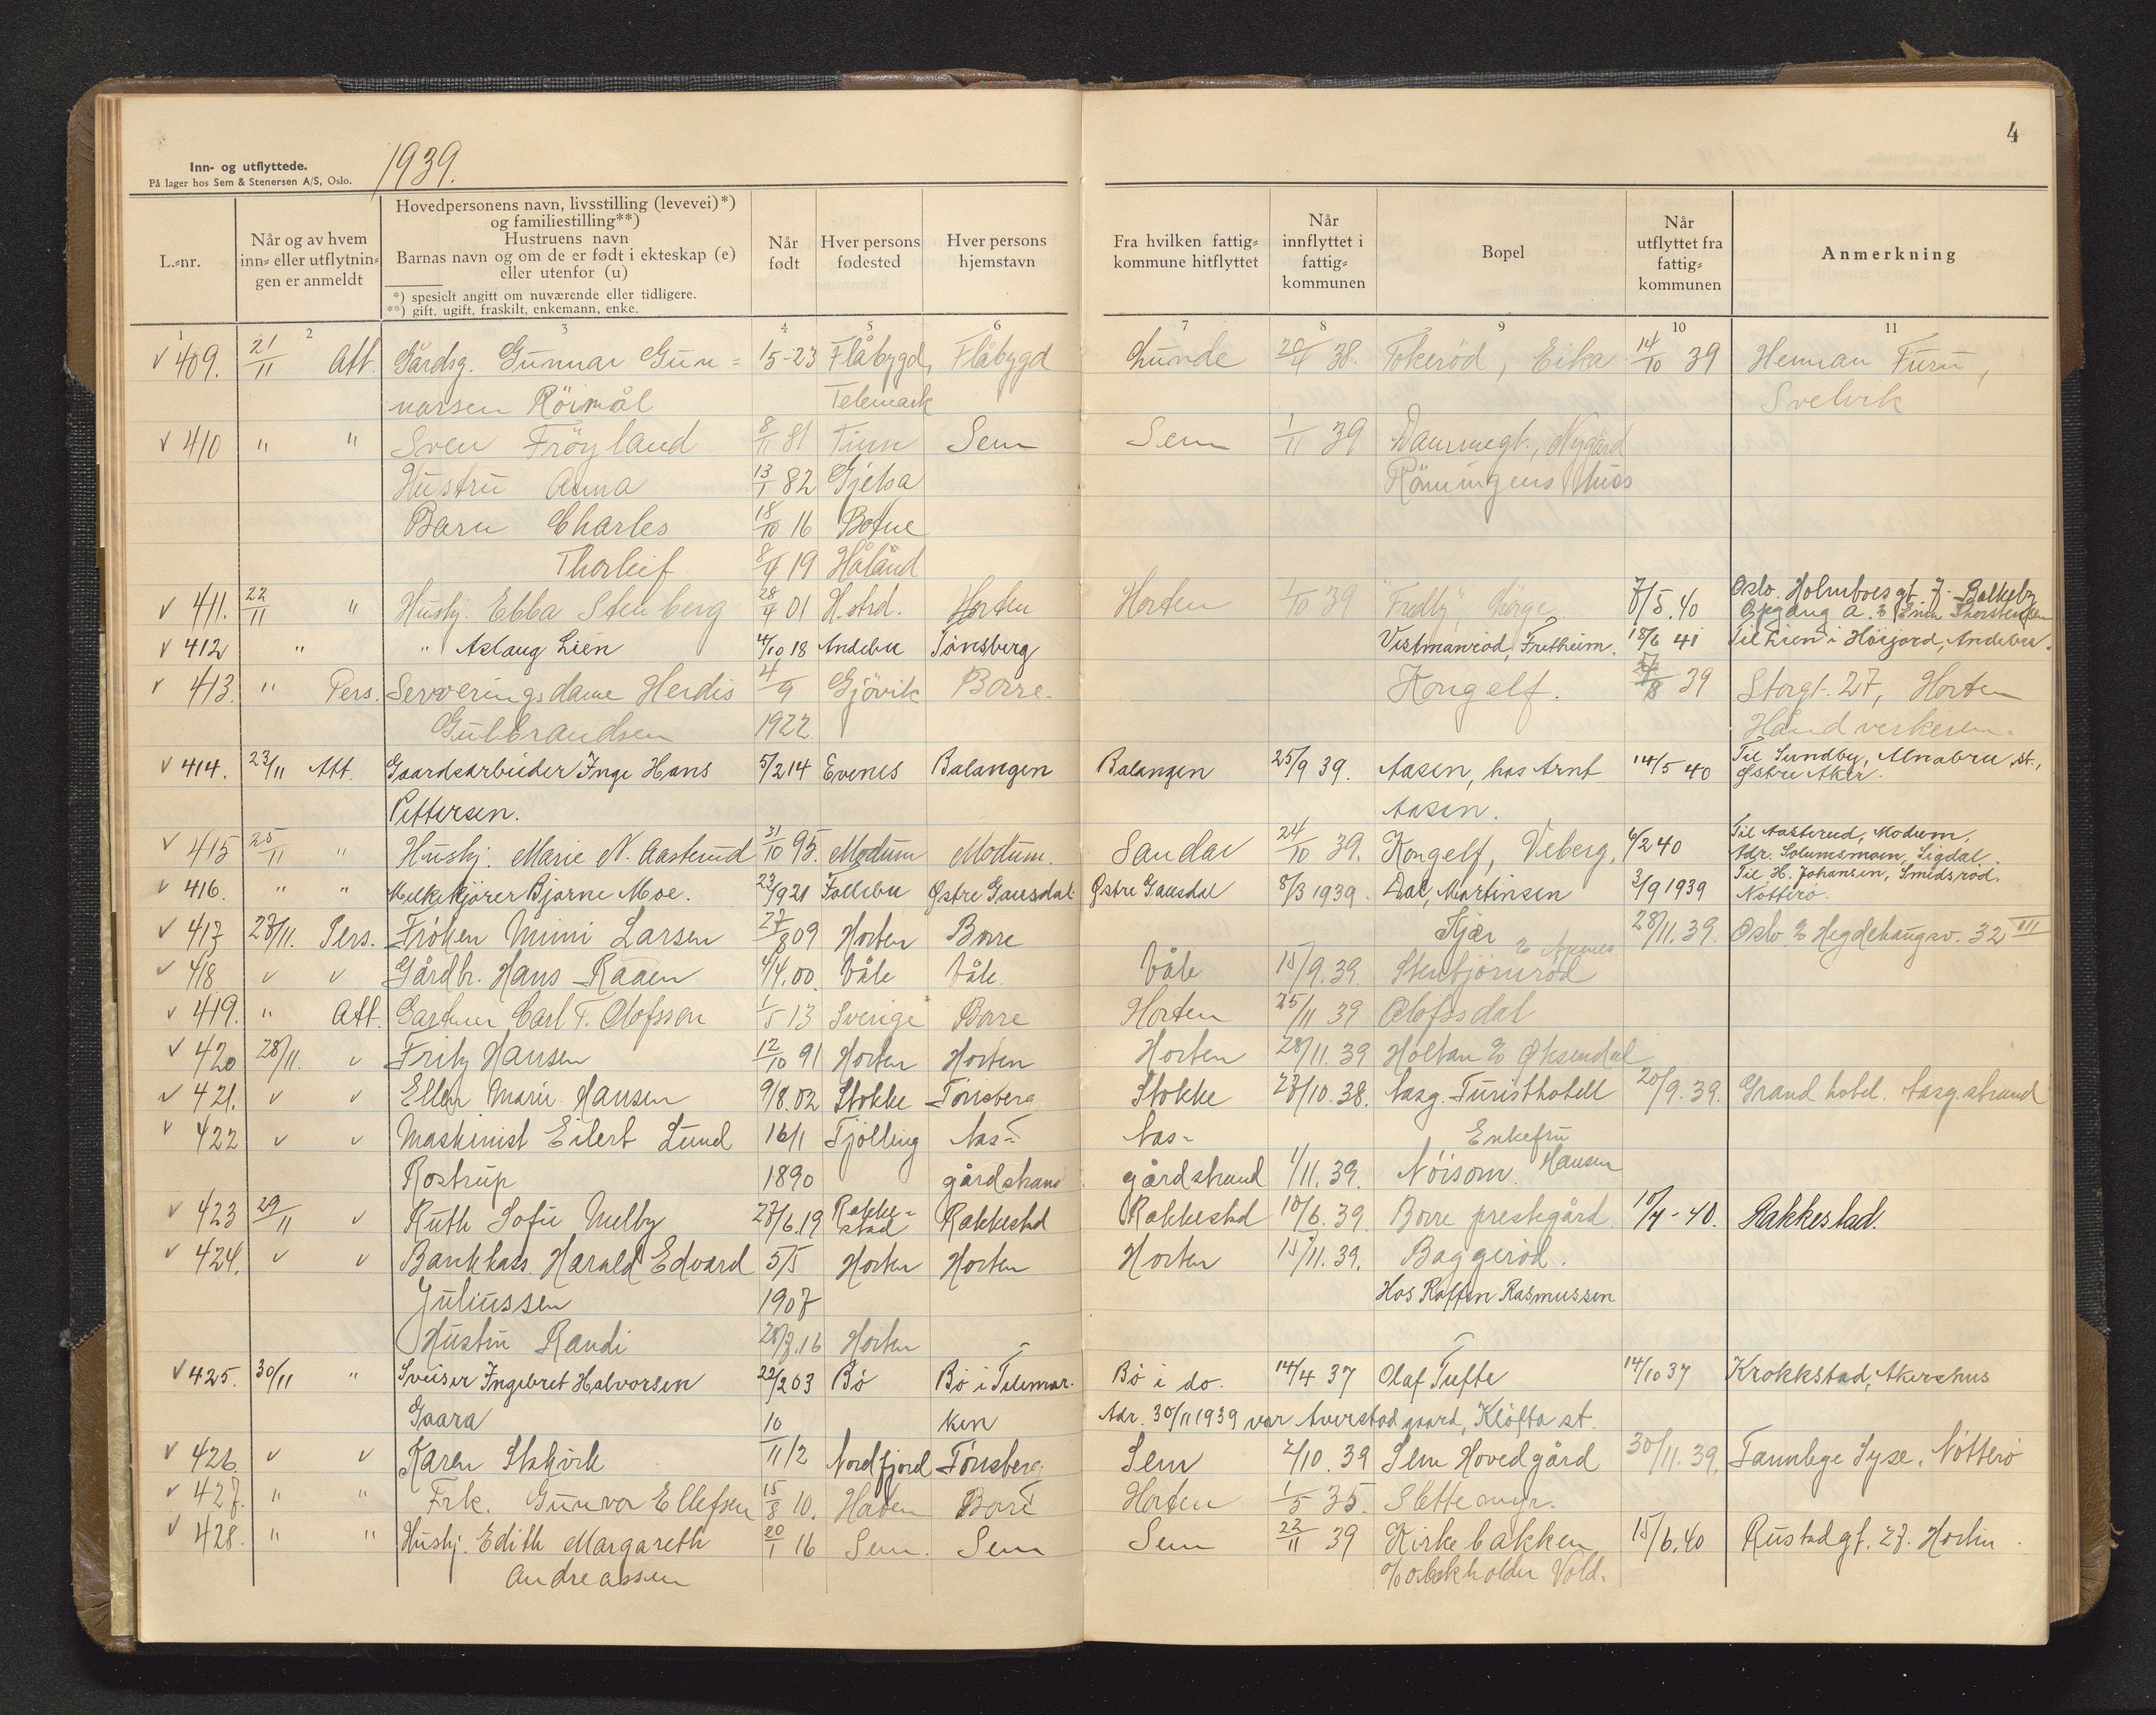 4
Inn- og utflyttede. 1939.
På lager hos Sem & Stenersen A/S, Oslo.
L.-nr. | Når og av hvem inn- eller utflytningen er anmeldt | Hovedpersonens navn, livsstilling (levevei)*) og familiestilling**) Hustruens navn Barnas navn og om de er født i ekteskap (e) eller utenfor (u) | Når født | Hver persons fødested | Hver persons hjemstavn | Fra hvilken fattigkommune hitflyttet | Når innflyttet i fattigkommunen | Bopel | Når utflyttet fra fattigkommunen | Anmerkning
*) spesielt angitt om nuværende eller tidligere.
**) gift, ugift, fraskilt, enkemann, enke.
1 2 3 4 5 6 7 8 9 10 11
✓ 409. 21/11 Att. Gårdsg. Gunnar Gun= 1/5-23 Flåbygd, Flåbygd Lunde 20/4 38. Tokeröd, Eika 14/10 39 Herman Furu,
narsen Röimål Telemark Svelvik
✓ 410 " " Sven Fröyland 8/11 81 Tinn Sem Sem 1/11 39 Dammegt., Nygård
Hustru Anna 13/1 82 Gjelsa Rönningens hus
Barn Charles 18/10 16 Botne
Thorleif 8/4 19 Håland
✓ 411. 22/11 " Hushj. Ebba Stenberg 28/4 01 H.strd. Horten Horten 1/10 39 "Fredly", Nørge 7/5.40 Oslo. Holmboesgt. 7- Balkeby
Opgang A.
✓ 412 " " Aslaug Lien 4/10 18 Andebu Tønsberg Vestmanrød, Fretheim. 18/6 41 Til Lien i Høijord, Andebu.
✓ 413. " Pers. Serveringsdame Herdis 4/9 Gjövik Borre. Kongelf. 8 39 Storgt. 27, Horten
Gulbrandsen 1922 Håndverkeren.
✓ 414. 23/11 Att. Gaardsarbeider Inge Hans 5/2 14 Evenes Balangen Balangen 25/9 39. Aasen, hos Arnt 14/5 40 Til Sundby, Alnabru st.,
Pettersen. Aasen. Østre Aker.
✓ 415 25/11 " Hushj. Marie N. Aasterud 31/10 95. Modum Modum. Sandar 24/10 39. Kongelf, Veberg, 6/2 40 Til Aasterud, Modum,
Adr. Solumsmoen, Sigdal.
✓ 416. " " Melkekjører Bjarne Moe. 23/9 21 Follebu Østre Gausdal Østre Gausdal 8/3 1939. Dal, Martinsen 3/9 1939 Til H. Johansen, Smidsrød.
Nøtterø.
✓ 417 27/11. Pers. Frøken Mimi Larsen 27/8 09 Horten Borre Kjær 28/11.39. Oslo % Hegdehaugsv. 32 III
✓ 418 v v Gårdbr. Hans Raaen 4/4.00. Våle Våle. Våle 15/9.39. Stenbjørnrød % Apenes
✓ 419. " Att. Gartner Carl T. Olofsson 1/5 13 Sverige Borre Horten 25/11 39 Olofsdal
✓ 420 28/11. v Fritz Hansen 12/10 91 Horten Horten Horten 28/11.39 Holtan % Øksendal
✓ 421. v v Ellen Marie Hansen 9/8.02 Stokke Tønsberg Stokke 27/10.38. Aasg. Turisthotell 20/9.39. Grand hotel. Aasg.strand
✓ 422 v v Maskinist Eilert Lund 16/1 Tjølling Aas= Aas= Enkefru
Rostrup 1890 gårdstrand gårdstrand 1/11.39. Nøisom. Hansen
✓ 423 29/11 v Ruth Sofie Melby 27/6.19 Rakke=stad Rakkestad Rakkestad 10/6.39. Borre prestegård. 10/4-40. Rakkestad.
✓ 424. v v Bankkass. Harald Edvard 5/5 Horten Horten Horten 15/11.39. Baggerød.
Juliussen 1907 Hos Roffen Rasmussen
Hustru Randi 28/7.16 Horten
✓ 425. 30/11 " Sveiser Ingebret Halvorsen 22/2 03 Bø Bø i Telemar- Bø i do. 14/4 37 Olaf Tufte 14/10 37 Krokkstad, Akershus
Gaara ken Adr. 30/11 1939 var Averstad gaard, Kløfta st.
✓ 426. v v Karen Stakvik 10/11 12 Nordfjord Tønsberg Sem 2/10.39 Sem Hovedgård 30/11.39. Tannlege Syse. Nøtterø
✓ 427. " " Frk. Gunvor Ellefsen 15/8 10. Horten Borre Horten 1/5 35. Slettemyr.
✓ 428. " " Hushj. Edith Margareth 20/1 16 Sem. Sem Sem 22/11 39 Kirkebakken 15/6.40 Rustadgt. 27. Horten.
Andreassen Vold.